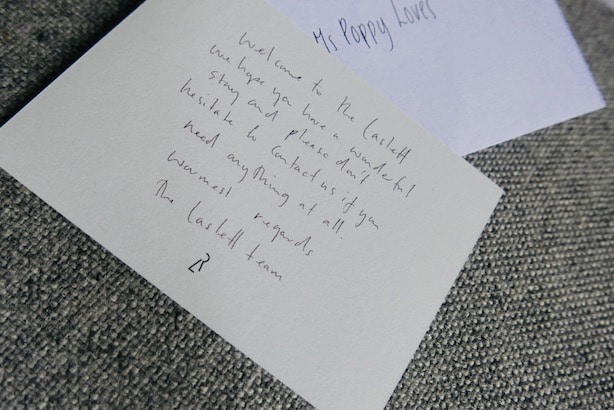 Ms Poppy Loves
Welcome to the Laslett
we hope you have a wonderful
stay and please don't
hesitate to contact us if you
need anything at all.
warmest regards
The Laslett team